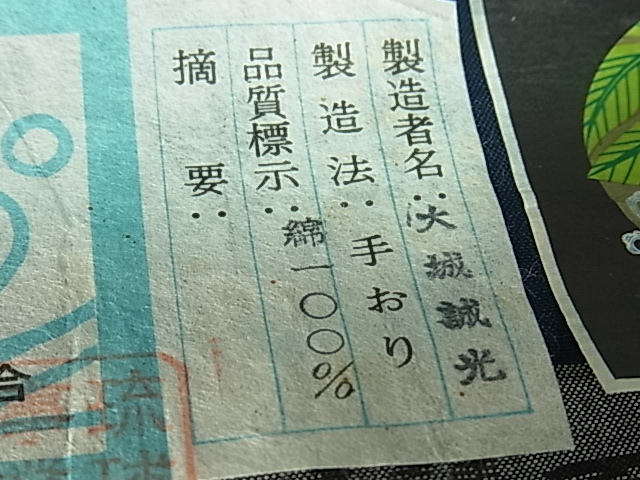 製造者名：大城誠光
製造法：手おり
品質標示：綿一〇〇％
摘要：
合
琉
球